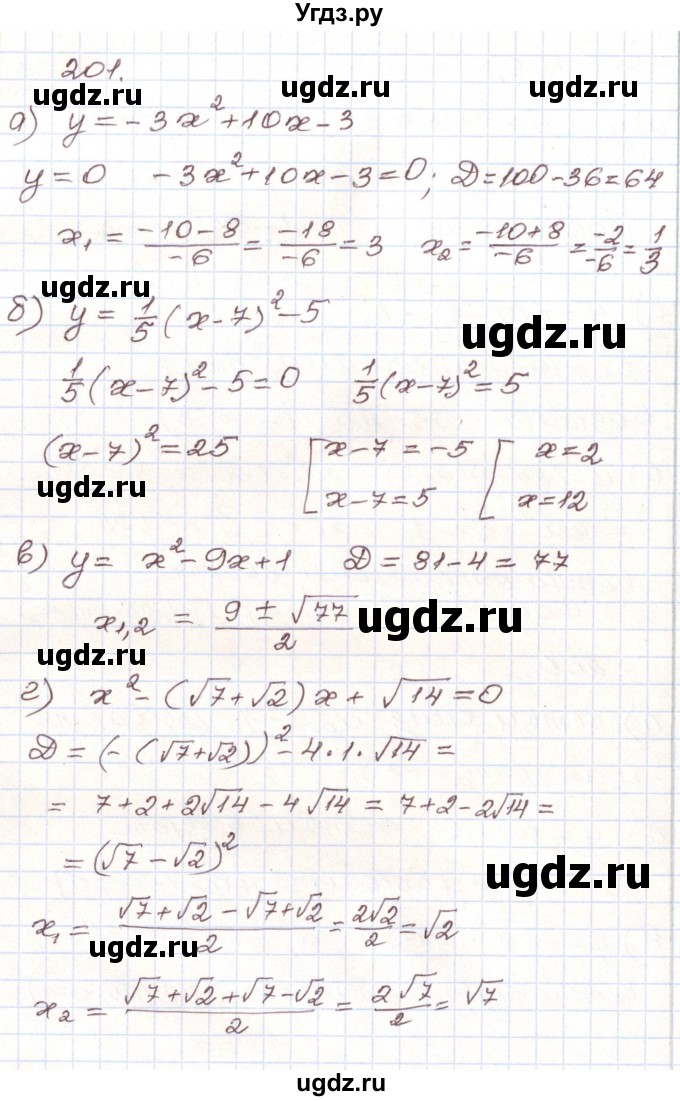 Угдз.ру
201.
ugdz.ru ugdz.ru
а) y = -3x²+10x-3
y=0 -3x²+10x-3=0; D=100-36=64
x₁ = (-10-8)/(-6) = (-18)/(-6) = 3 x₂ = (-10+8)/(-6) = (-2)/(-6) = 1/3
ugdz.ru
б) y = 1/5(x-7)²-5
ugdz.ru
1/5(x-7)²-5=0 1/5(x-7)²=5
(x-7)²=25 [x-7=-5 [x=2
x-7=5 x=12
ugdz.ru
в) y= x²-9x+1 D=81-4=77
x₁,₂ = (9±√77)/2
ugdz.ru
г) x²-(√7+√2)x+√14=0
D=(-(√7+√2))²-4·1·√14=
= 7+2+2√14-4√14=7+2-2√14=
=(√7-√2)²
ugdz.ru
x₁ = (√7+√2-√7+√2)/2 = 2√2/2 = √2
ugdz.ru
x₂ = (√7+√2+√7-√2)/2 = 2√7/2 = √7
ugdz.ru